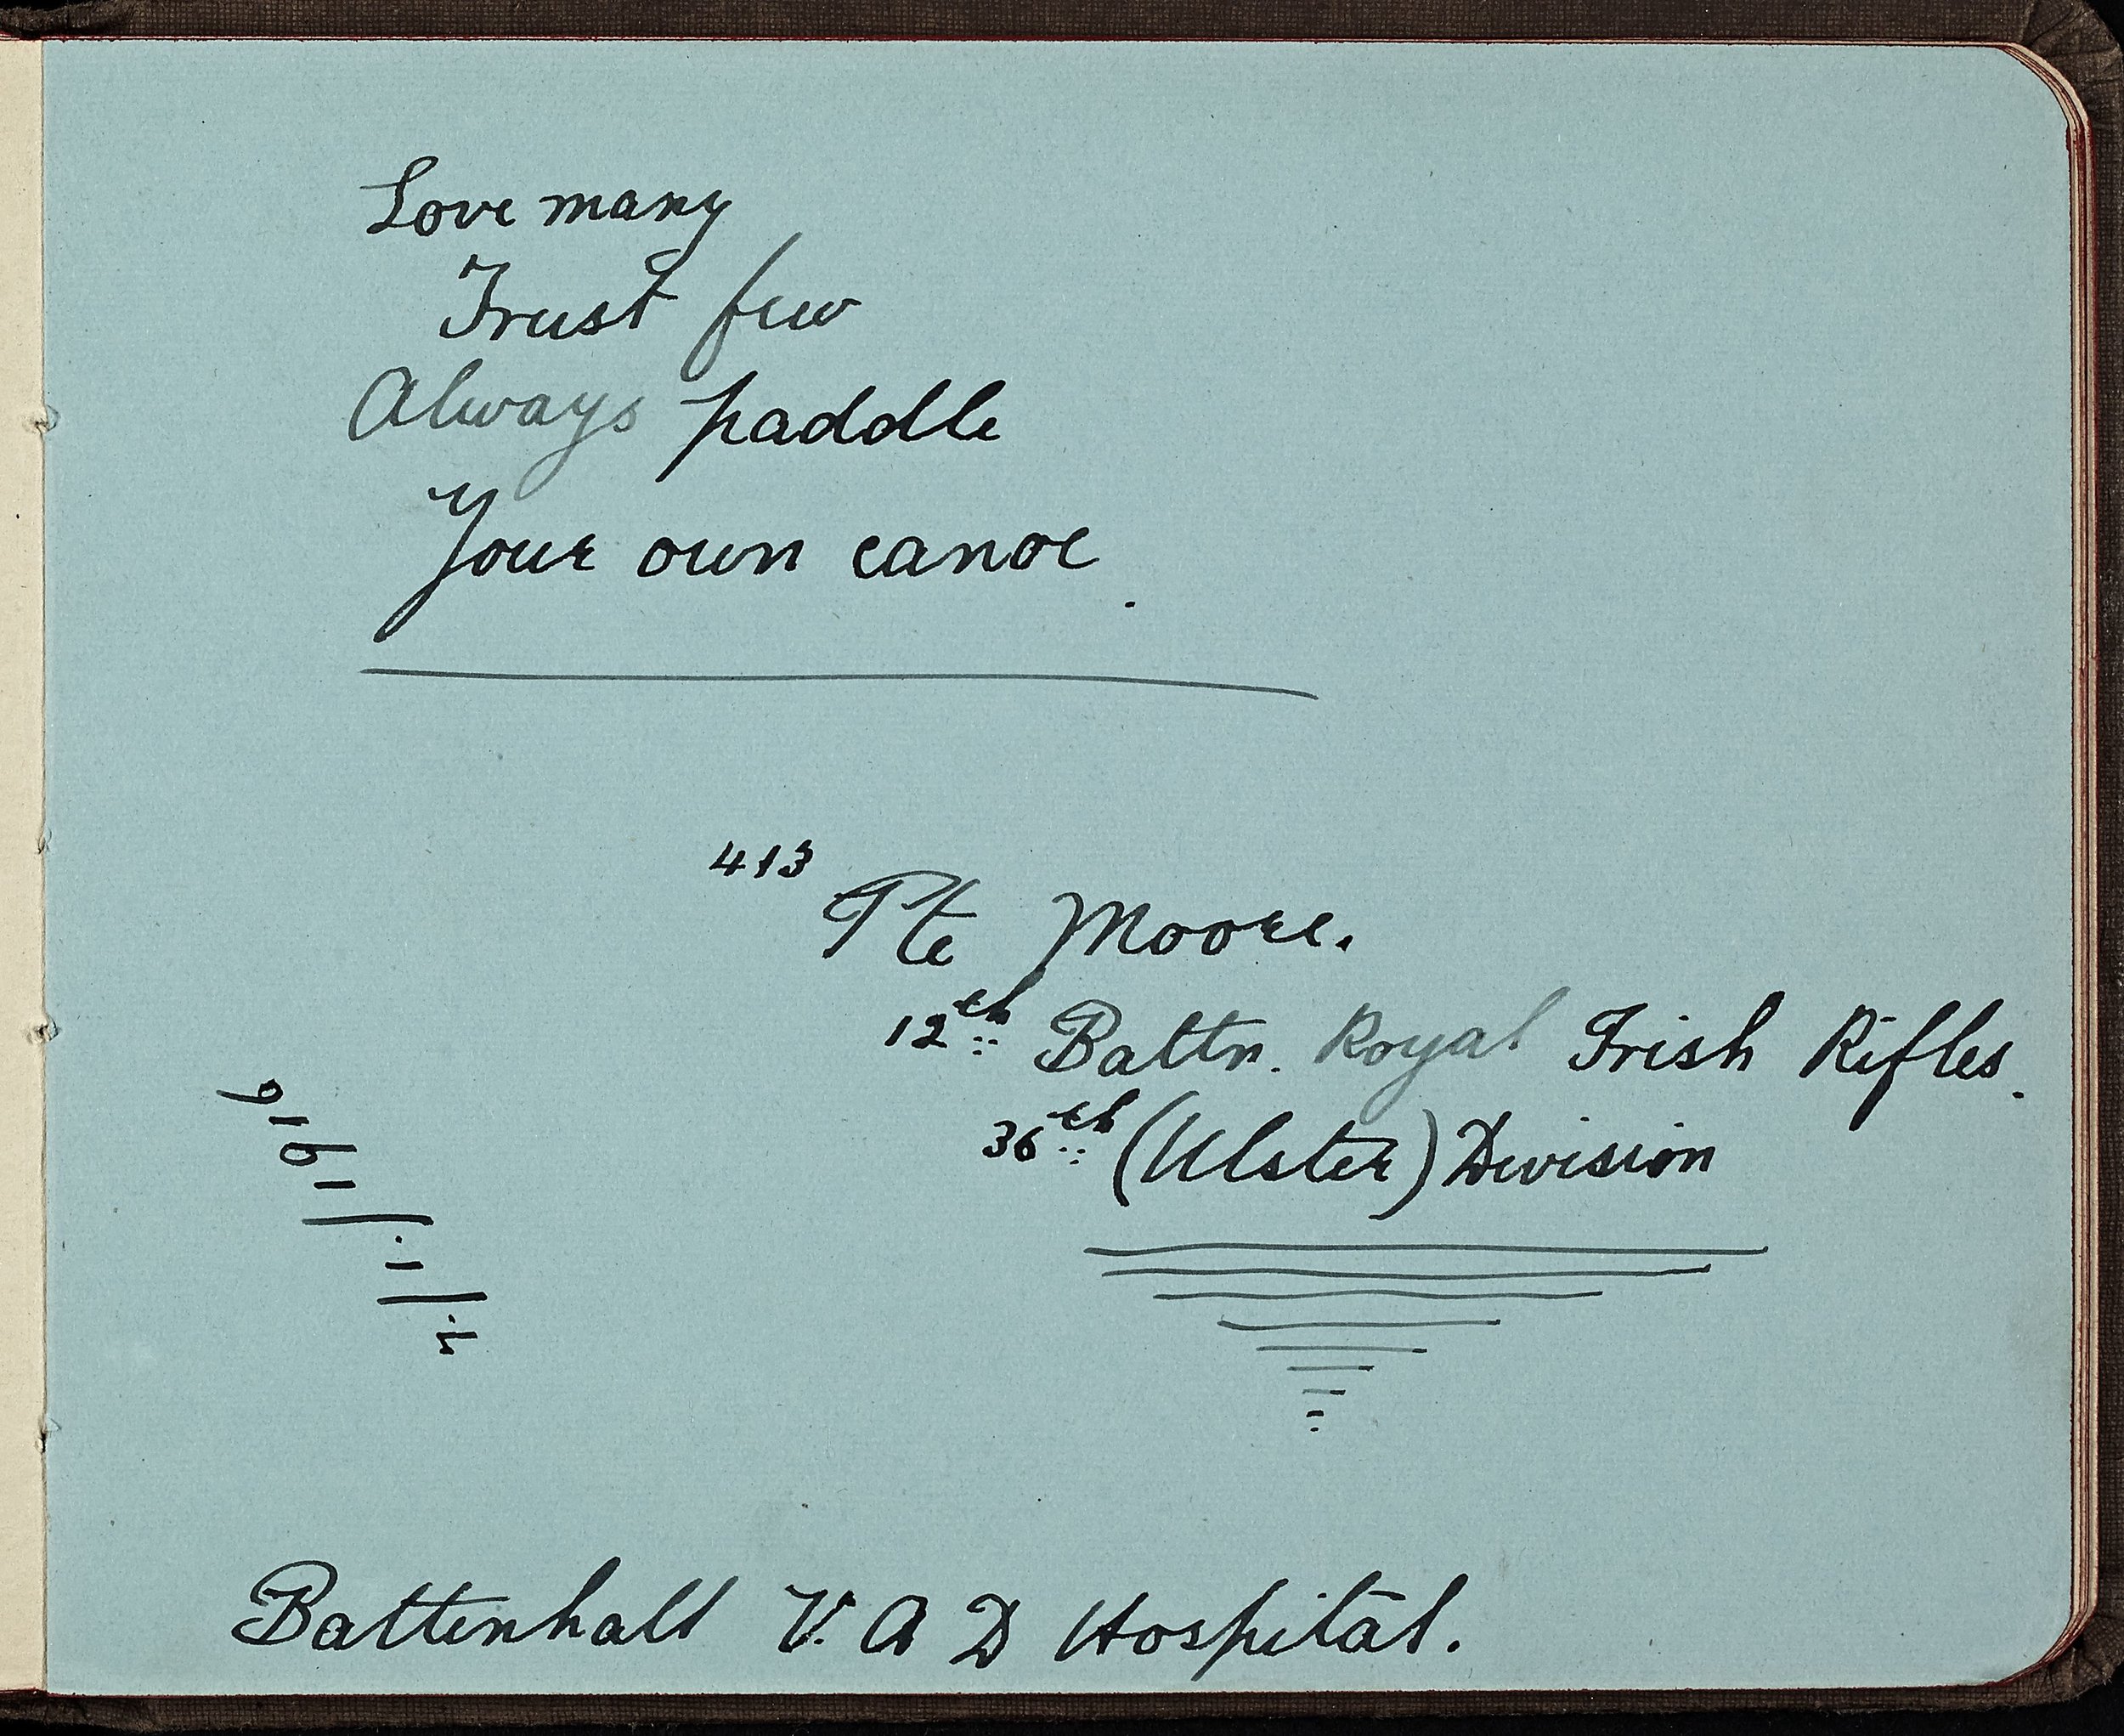 Love many
Trust few
Always paddle
Your own canoe.
413
Pte Moore.
12th Battn. Royal Irish Rifles.
36th (Ulster) Division
4./1./1916
Battenhall V. A D Hospital.